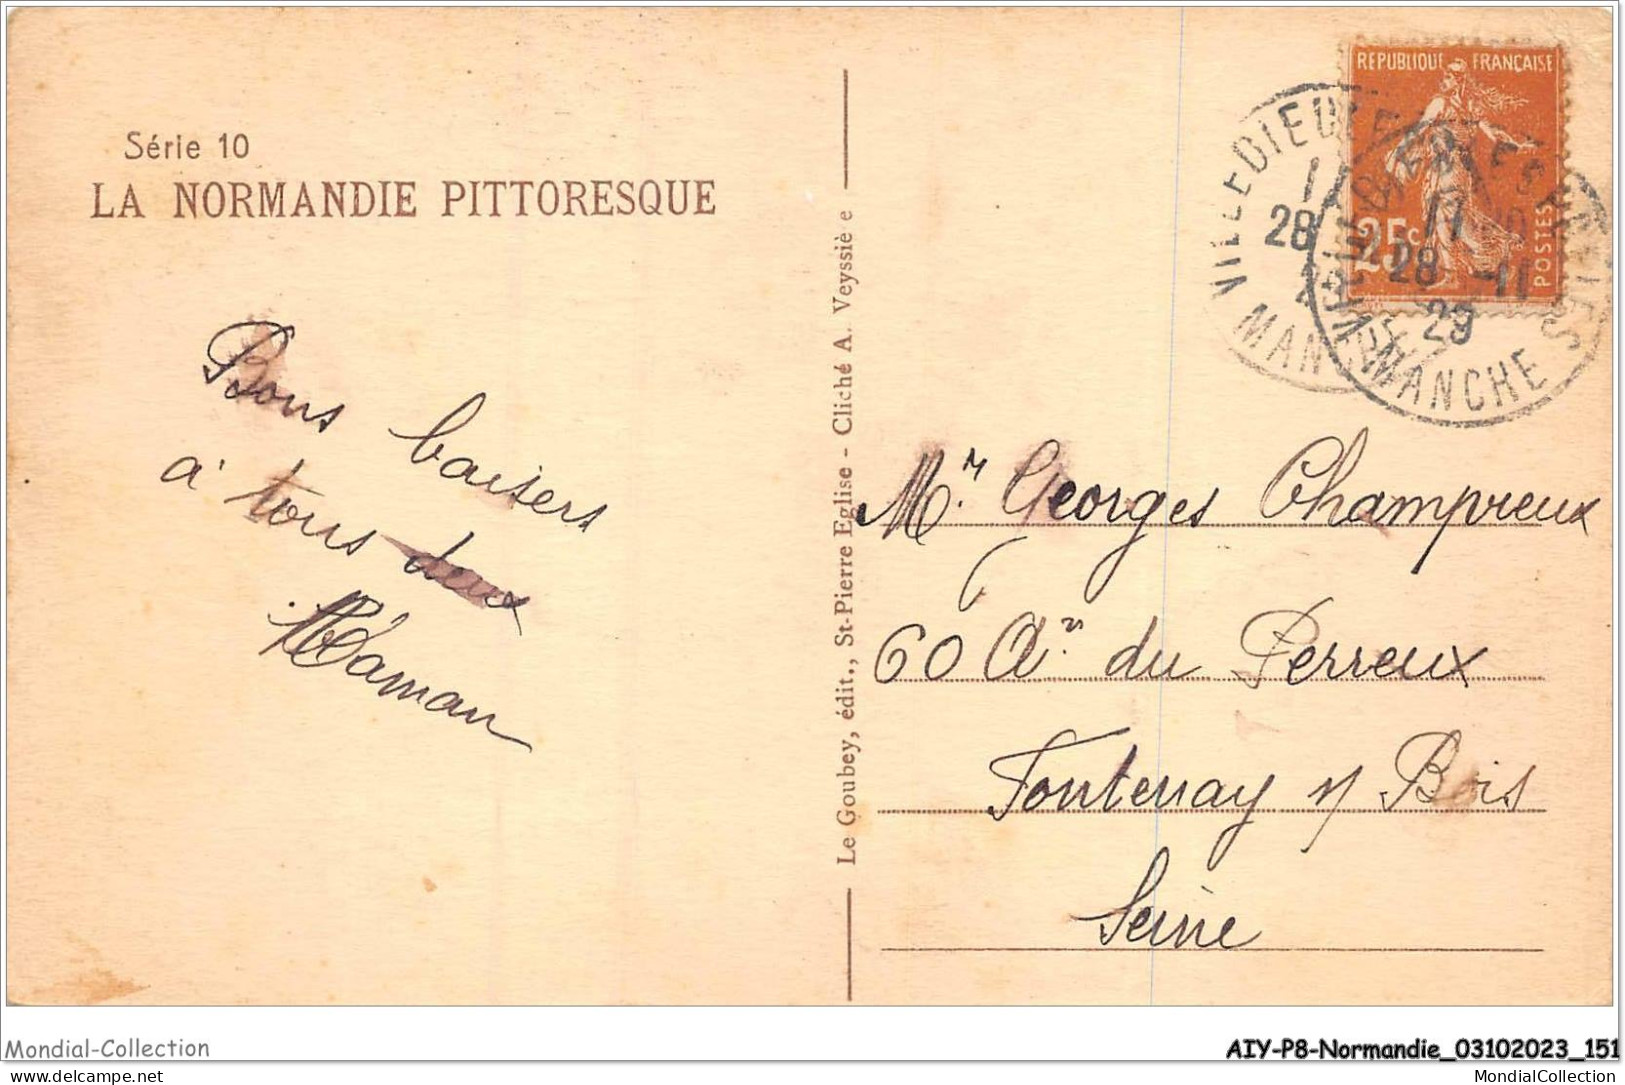 Série 10
LA NORMANDIE PITTORESQUE
Bons baisers
à tous deux
Maman
Le Goubey, édit., St-Pierre Eglise - Cliché A. Veyssière
REPUBLIQUE FRANÇAISE
25c
POSTES
VILLEDIEU LES
28
MANCHE
11
28 -11
29
MANCHE
Mr. Georges Champreux
60 Av. du Perreux
Fontenay s/ Bois
Seine
Mondial-Collection
AIY-P8-Normandie_03102023_151
delcampe.net
MondialCollection